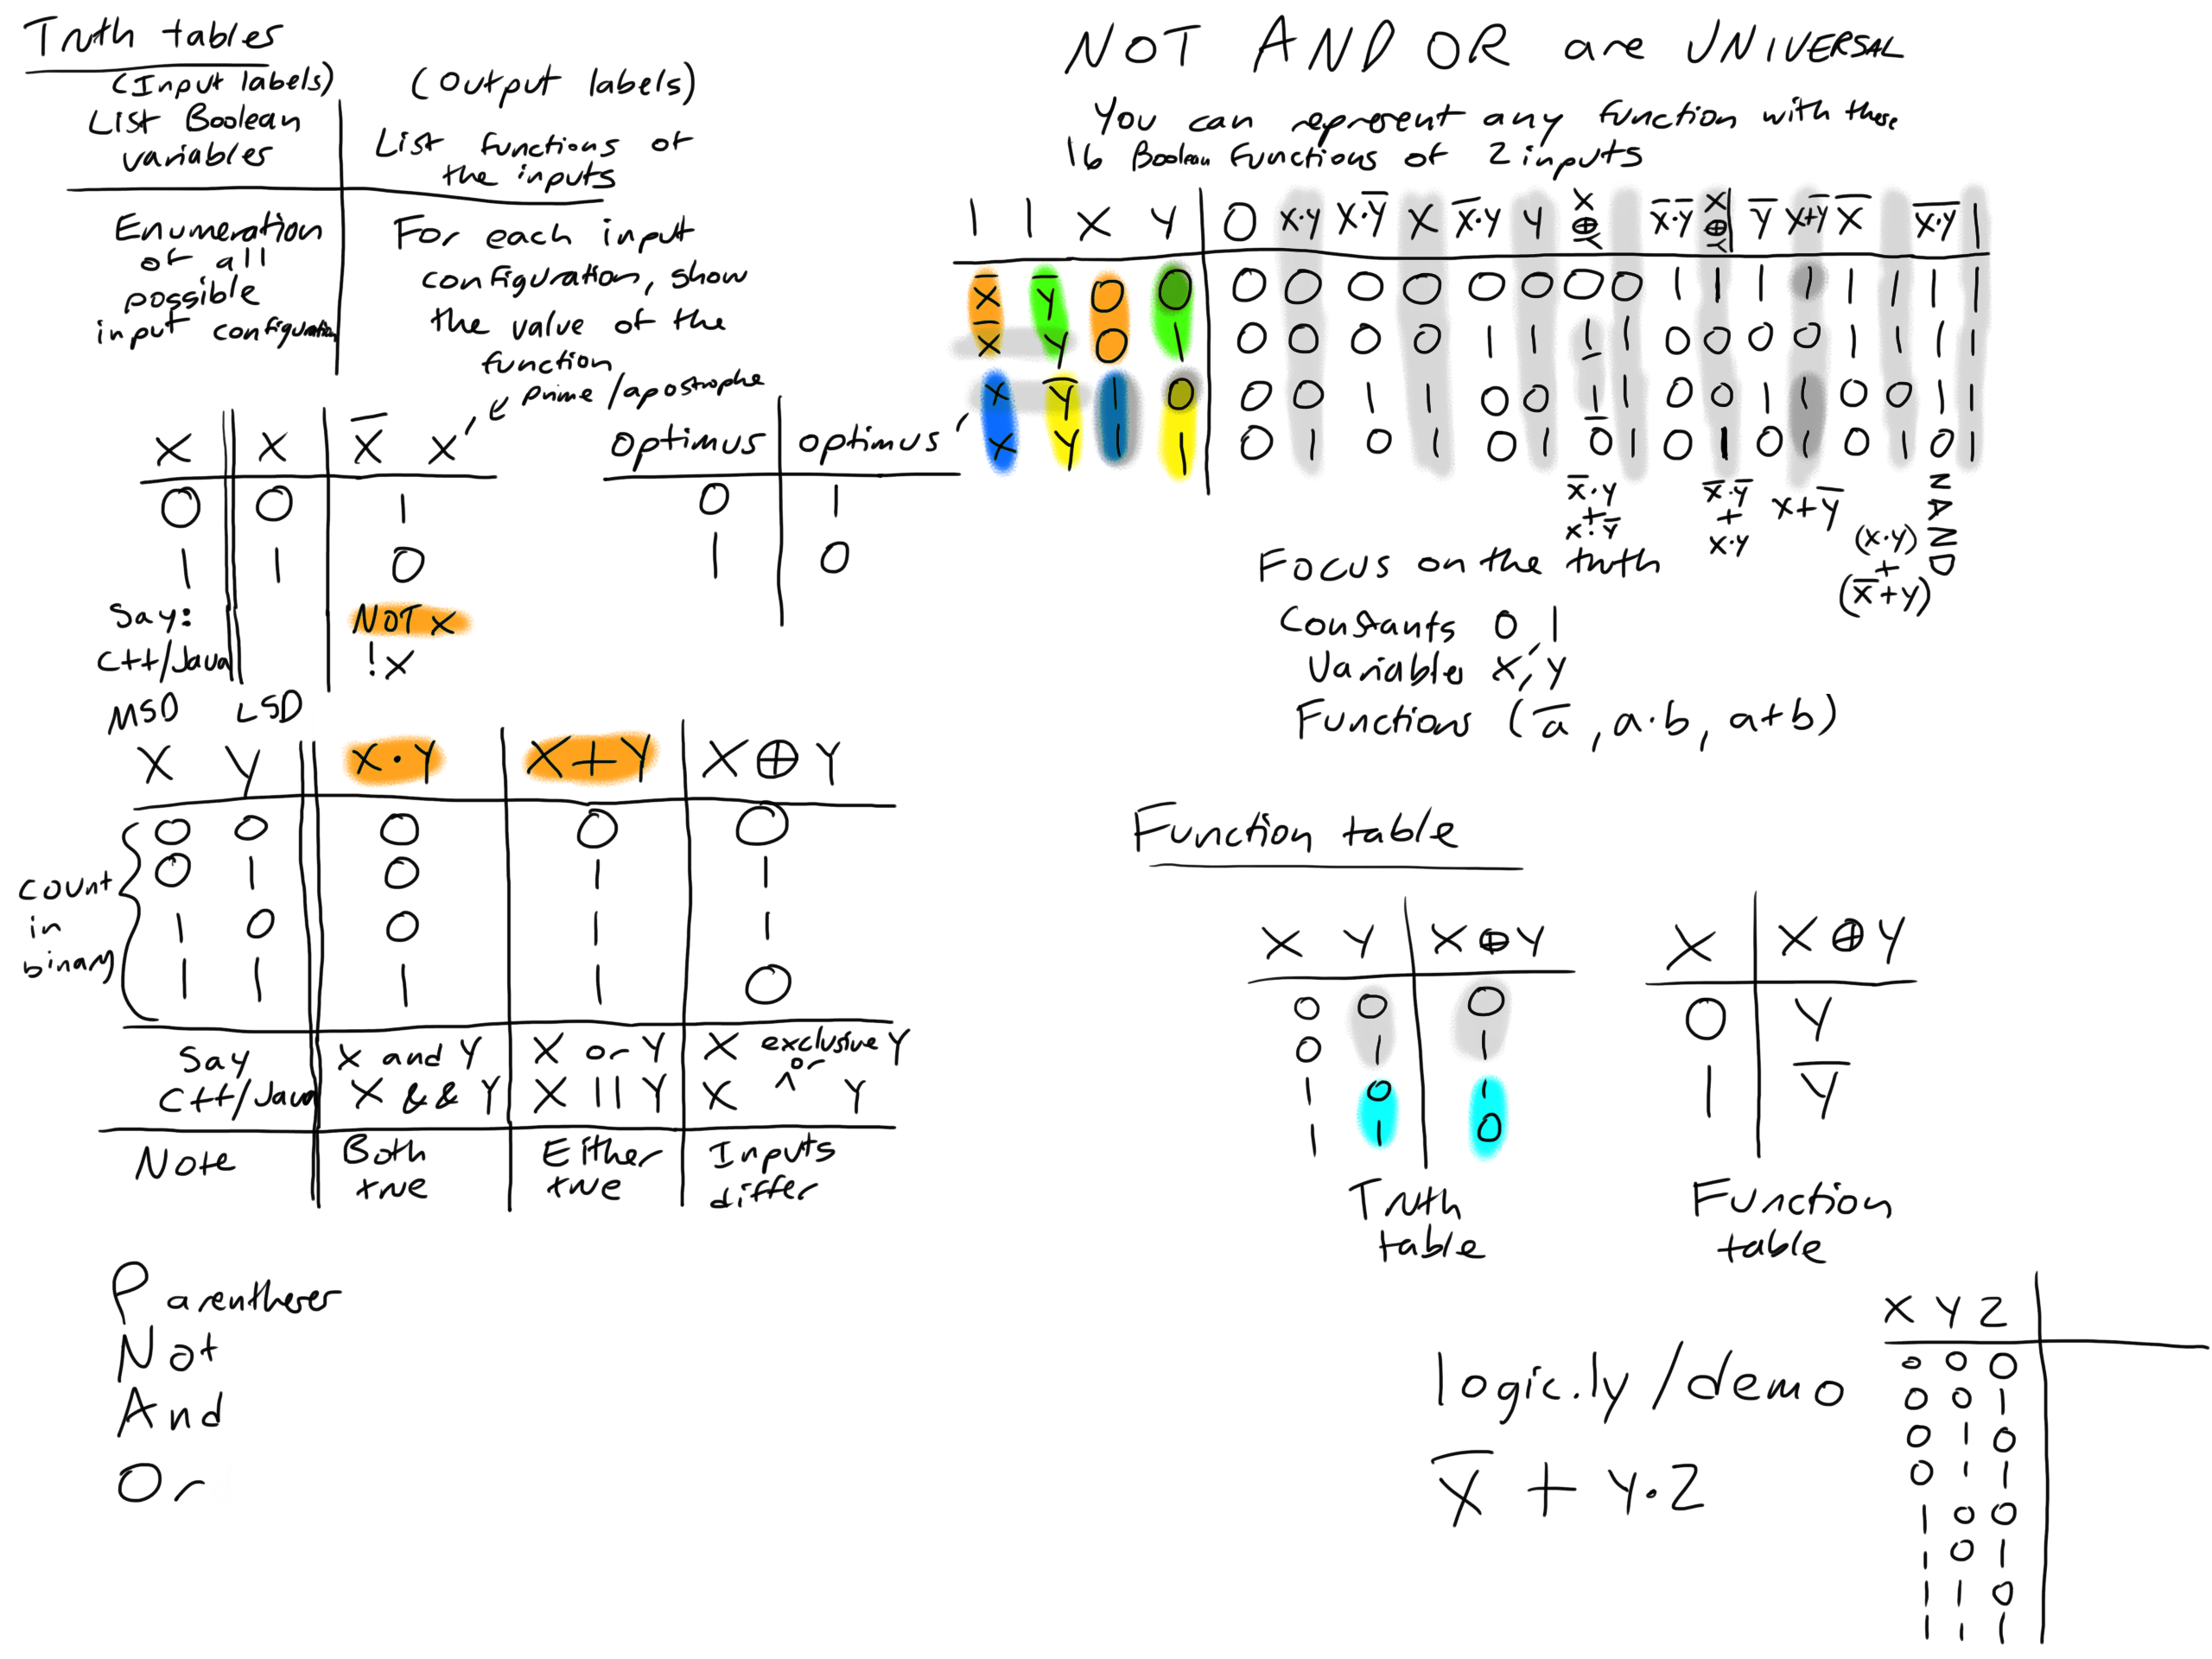 Truth tables
(Input labels)
List Boolean
variables
(Output labels)
List functions of
the inputs
Enumeration
of all
possible
input configuration
For each input
configuration, show
the value of the
function
prime / apostrophe
X X X̅ X′
0 0 1
1 1 0
Say: NOT X
C++/Java !X
optimus optimus′
0 1
1 0
MSD LSD
X Y X·Y X+Y X⊕Y
0 0 0 0 0
0 1 0 1 1
1 0 0 1 1
1 1 1 1 0
count
in
binary
Say X and Y X or Y X exclusive or Y
C++/Java X && Y X || Y X ^ Y
Note Both true Either true Inputs differ
Parentheses
Not
And
Or
NOT AND OR are UNIVERSAL
You can represent any function with these
16 Boolean functions of 2 inputs
1 1 X Y 0 X·Y X·Y̅ X X̅·Y Y X⊕Y X̅·Y̅ X⊕Y Y̅ X+Y̅ X̅ X·Y 1
X̅ Y̅ 0 0 0 0 0 0 0 0 0 0 1 1 1 1 1 1 1 1
X̅ Y 0 1 0 0 0 0 1 1 1 1 0 0 0 0 1 1 1 1
X Y̅ 1 0 0 0 1 1 0 0 1 1 0 0 1 1 0 0 1 1
X Y 1 1 0 1 0 1 0 1 0 1 0 1 0 1 0 1 0 1
X̅·Y
+
X·Y̅
X̅·Y̅
+
X·Y
X+Y̅
(X·Y)
+
(X̅+Y)
NAND
Focus on the truth
Constants 0, 1
Variables X, Y
Functions (a̅, a·b, a+b)
Function table
X Y X⊕Y
0 0 0
0 1 1
1 0 1
1 1 0
Truth
table
X X⊕Y
0 Y
1 Y̅
Function
table
logic.ly/demo
X̅ + Y·Z
X Y Z
0 0 0
0 0 1
0 1 0
0 1 1
1 0 0
1 0 1
1 1 0
1 1 1